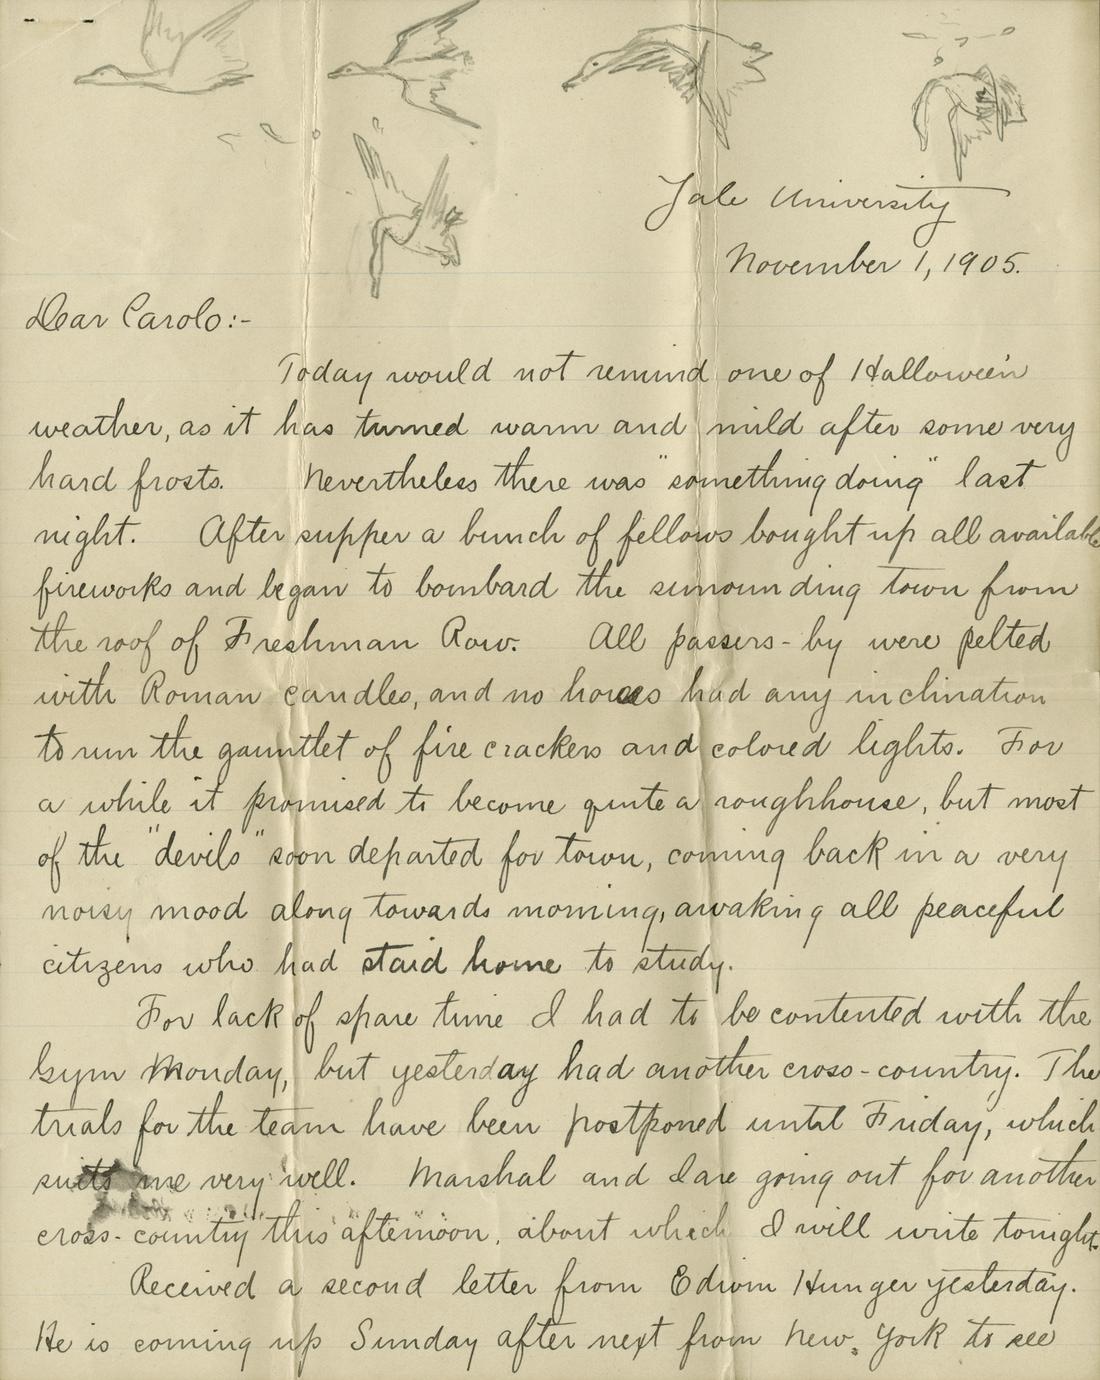 Yale University
November 1, 1905.
Dear Carolo:-
Today would not remind one of Halloween
weather, as it has turned warm and mild after some very
hard frosts. Nevertheless there was "something doing" last
night. After supper a bunch of fellows bought up all available
fireworks and began to bombard the surrounding town from
the roof of Freshman Row. All passers-by were pelted
with Roman candles, and no horses had any inclination
to run the gauntlet of fire crackers and colored lights. For
a while it promised to become quite a roughhouse, but most
of the "devils" soon departed for town, coming back in a very
noisy mood along towards morning, awaking all peaceful
citizens who had staid home to study.
For lack of spare time I had to be contented with the
Gym Monday, but yesterday had another cross-country. The
trials for the team have been postponed until Friday, which
suits me very well. Marshal and I are going out for another
cross-country this afternoon, about which I will write tonight.
Received a second letter from Edwin Hunger yesterday.
He is coming up Sunday after next from New York to see